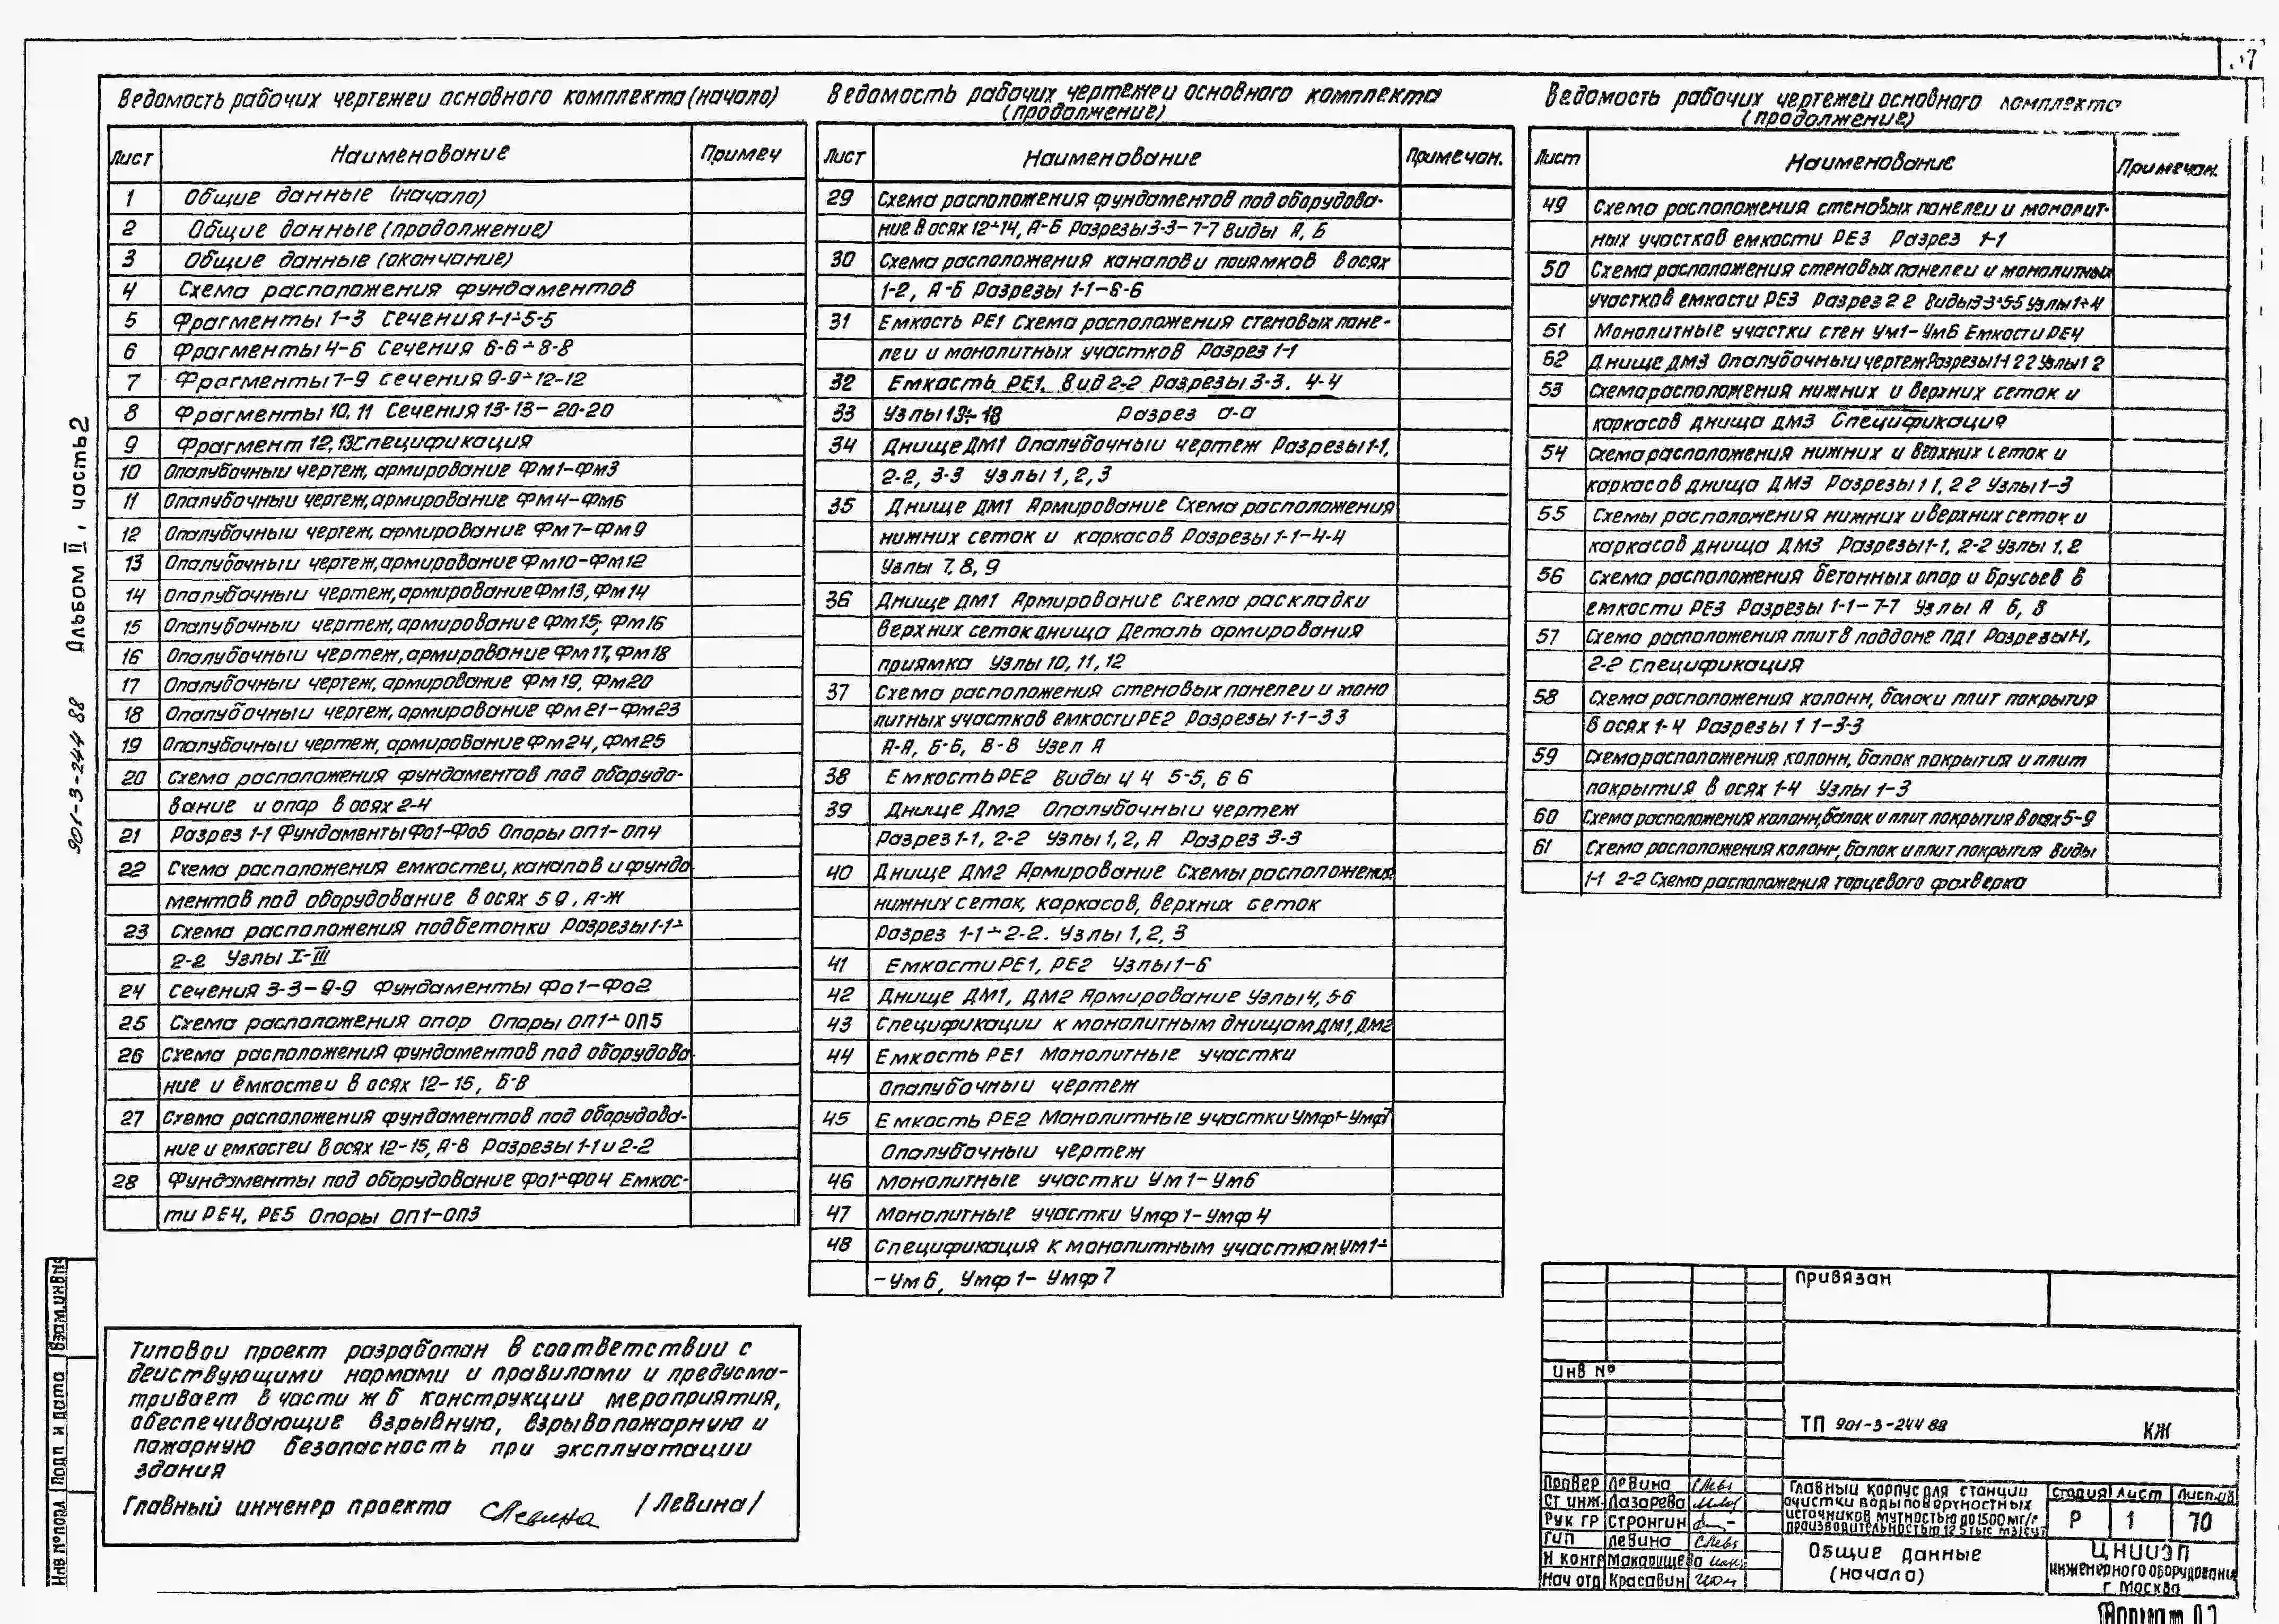 37
Ведомость рабочих чертежей основного комплекта (начало)
Лист Наименование Примеч
1 Общие данные (начало)
2 Общие данные (продолжение)
3 Общие данные (окончание)
4 Схема расположения фундаментов
5 Фрагменты 1-3 Сечения 1-1÷5-5
6 Фрагменты 4-6 Сечения 6-6÷8-8
7 Фрагменты 7-9 сечения 9-9÷12-12
8 Фрагменты 10, 11 Сечения 13-13-20-20
9 Фрагмент 12, 13 Спецификация
10 Опалубочный чертеж, армирование Фм1-Фм3
11 Опалубочный чертеж, армирование Фм4-Фм6
12 Опалубочный чертеж, армирование Фм7-Фм9
13 Опалубочный чертеж, армирование Фм10-Фм12
14 Опалубочный чертеж, армирование Фм13, Фм14
15 Опалубочный чертеж, армирование Фм15, Фм16
16 Опалубочный чертеж, армирование Фм17, Фм18
17 Опалубочный чертеж, армирование Фм19, Фм20
18 Опалубочный чертеж, армирование Фм21-Фм23
19 Опалубочный чертеж, армирование Фм24, Фм25
20 Схема расположения фундаментов под оборудо-
вание и опор в осях 2-4
21 Разрез 1-1 Фундаменты Фо1-Фо5 Опоры ОП1-ОП4
22 Схема расположения емкостей, каналов и фунда
ментов под оборудование в осях 5 9, А-Ж
23 Схема расположения подбетонки Разрезы 1-1÷
2-2 Узлы I-III
24 Сечения 3-3-9-9 Фундаменты Фо1-Фо2
25 Схема расположения опор Опоры ОП1÷ОП5
26 Схема расположения фундаментов под оборудова-
ние и ёмкостей в осях 12-15, Б-В
27 Схема расположения фундаментов под оборудова-
ние и емкостей в осях 12-15, А-В Разрезы 1-1 и 2-2
28 Фундаменты под оборудование Фо1÷Фо4 Емкос-
ти РЕ4, РЕ5 Опоры ОП1-ОП3
Ведомость рабочих чертежей основного комплекта
(продолжение)
Лист Наименование Примечан.
29 Схема расположения фундаментов под оборудова-
ние в осях 12÷14, А-Б Разрезы 3-3-7-7 Виды А, Б
30 Схема расположения каналов и приямков в осях
1-2, А-Б Разрезы 1-1-6-6
31 Емкость РЕ1 Схема расположения стеновых пане-
лей и монолитных участков Разрез 1-1
32 Емкость РЕ1. Вид 2-2 Разрезы 3-3. 4-4
33 Узлы 13÷18 Разрез а-а
34 Днище ДМ1 Опалубочный чертеж Разрезы 1-1,
2-2, 3-3 Узлы 1, 2, 3
35 Днище ДМ1 Армирование Схема расположения
нижних сеток и каркасов Разрезы 1-1-4-4
Узлы 7, 8, 9
36 Днище ДМ1 Армирование Схема раскладки
верхних сеток днища Деталь армирования
приямка Узлы 10, 11, 12
37 Схема расположения стеновых панелей и моно
литных участков емкости РЕ2 Разрезы 1-1-3 3
А-А, Б-Б, В-В Узел А
38 Емкость РЕ2 Виды 4 4 5-5, 6 6
39 Днище Дм2 Опалубочный чертеж
Разрез 1-1, 2-2 Узлы 1, 2, А Разрез 3-3
40 Днище ДМ2 Армирование Схемы расположения
нижних сеток, каркасов, верхних сеток
Разрез 1-1÷2-2. Узлы 1, 2, 3
41 Емкости РЕ1, РЕ2 Узлы 1-6
42 Днище ДМ1, ДМ2 Армирование Узлы 4, 5-6
43 Спецификации к монолитным днищам ДМ1, ДМ2
44 Емкость РЕ1 Монолитные участки
Опалубочный чертеж
45 Емкость РЕ2 Монолитные участки Умф1-Умф7
Опалубочный чертеж
46 Монолитные участки Ум1-Ум6
47 Монолитные участки Умф1-Умф4
48 Спецификация к монолитным участкам Ум1÷
-Ум6, Умф1-Умф7
Ведомость рабочих чертежей основного комплекта
(продолжение)
Лист Наименование Примечан.
49 Схема расположения стеновых панелей и монолит-
ных участков емкости РЕ3 Разрез 1-1
50 Схема расположения стеновых панелей и монолитных
участков емкости РЕ3 Разрез 2 2 Виды 3 3÷5-5 Узлы 1÷4
51 Монолитные участки стен Ум1-Ум6 Емкости РЕ4
52 Днище ДМ3 Опалубочный чертеж Разрезы 1-1 2 2 Узлы 1 2
53 Схема расположения нижних и верхних сеток и
каркасов днища ДМ3 Спецификация
54 Схема расположения нижних и верхних сеток и
каркасов днища ДМ3 Разрезы 1 1, 2 2 Узлы 1-3
55 Схемы расположения нижних и верхних сеток и
каркасов днища ДМ3 Разрезы 1-1, 2-2 Узлы 1, 2
56 Схема расположения бетонных опор и брусьев в
емкости РЕ3 Разрезы 1-1-7-7 Узлы А Б, В
57 Схема расположения плит в поддоне ПД1 Разрезы 1-1,
2-2 Спецификация
58 Схема расположения колонн, балок и плит покрытия
в осях 1-4 Разрезы 1 1-3-3
59 Схема расположения колонн, балок покрытия и плит
покрытия в осях 1-4 Узлы 1-3
60 Схема расположения колонн, балок и плит покрытия в осях 5-9
61 Схема расположения колонн, балок и плит покрытия Виды
1-1 2-2 Схема расположения торцевого фахверка
Альбом II, часть 2
901-3-244 88
Взам.инв№
Подп и дата
Инв №подл
Типовой проект разработан в соответствии с
действующими нормами и правилами и предусма-
тривает в части ж б конструкций мероприятия,
обеспечивающие взрывную, взрывопожарную и
пожарную безопасность при эксплуатации
здания
Главный инженер проекта /Левина/
Привязан
Инв №
ТП 901-3-244 88 КЖ
Провер Левина
Ст инж. Лазарева
Рук гр Стронгин
Гип Левина
Н контр Макарищева
Нач отд Красавин
Главный корпус для станции
очистки воды поверхностных
источников мутностью до 1500 мг/л
производительностью 12 5 тыс м3/сут
Стадия Лист Листов
Р 1 70
Общие данные
(начало)
ЦНИИЭП
инженерного оборудования
г Москва
Формат А2